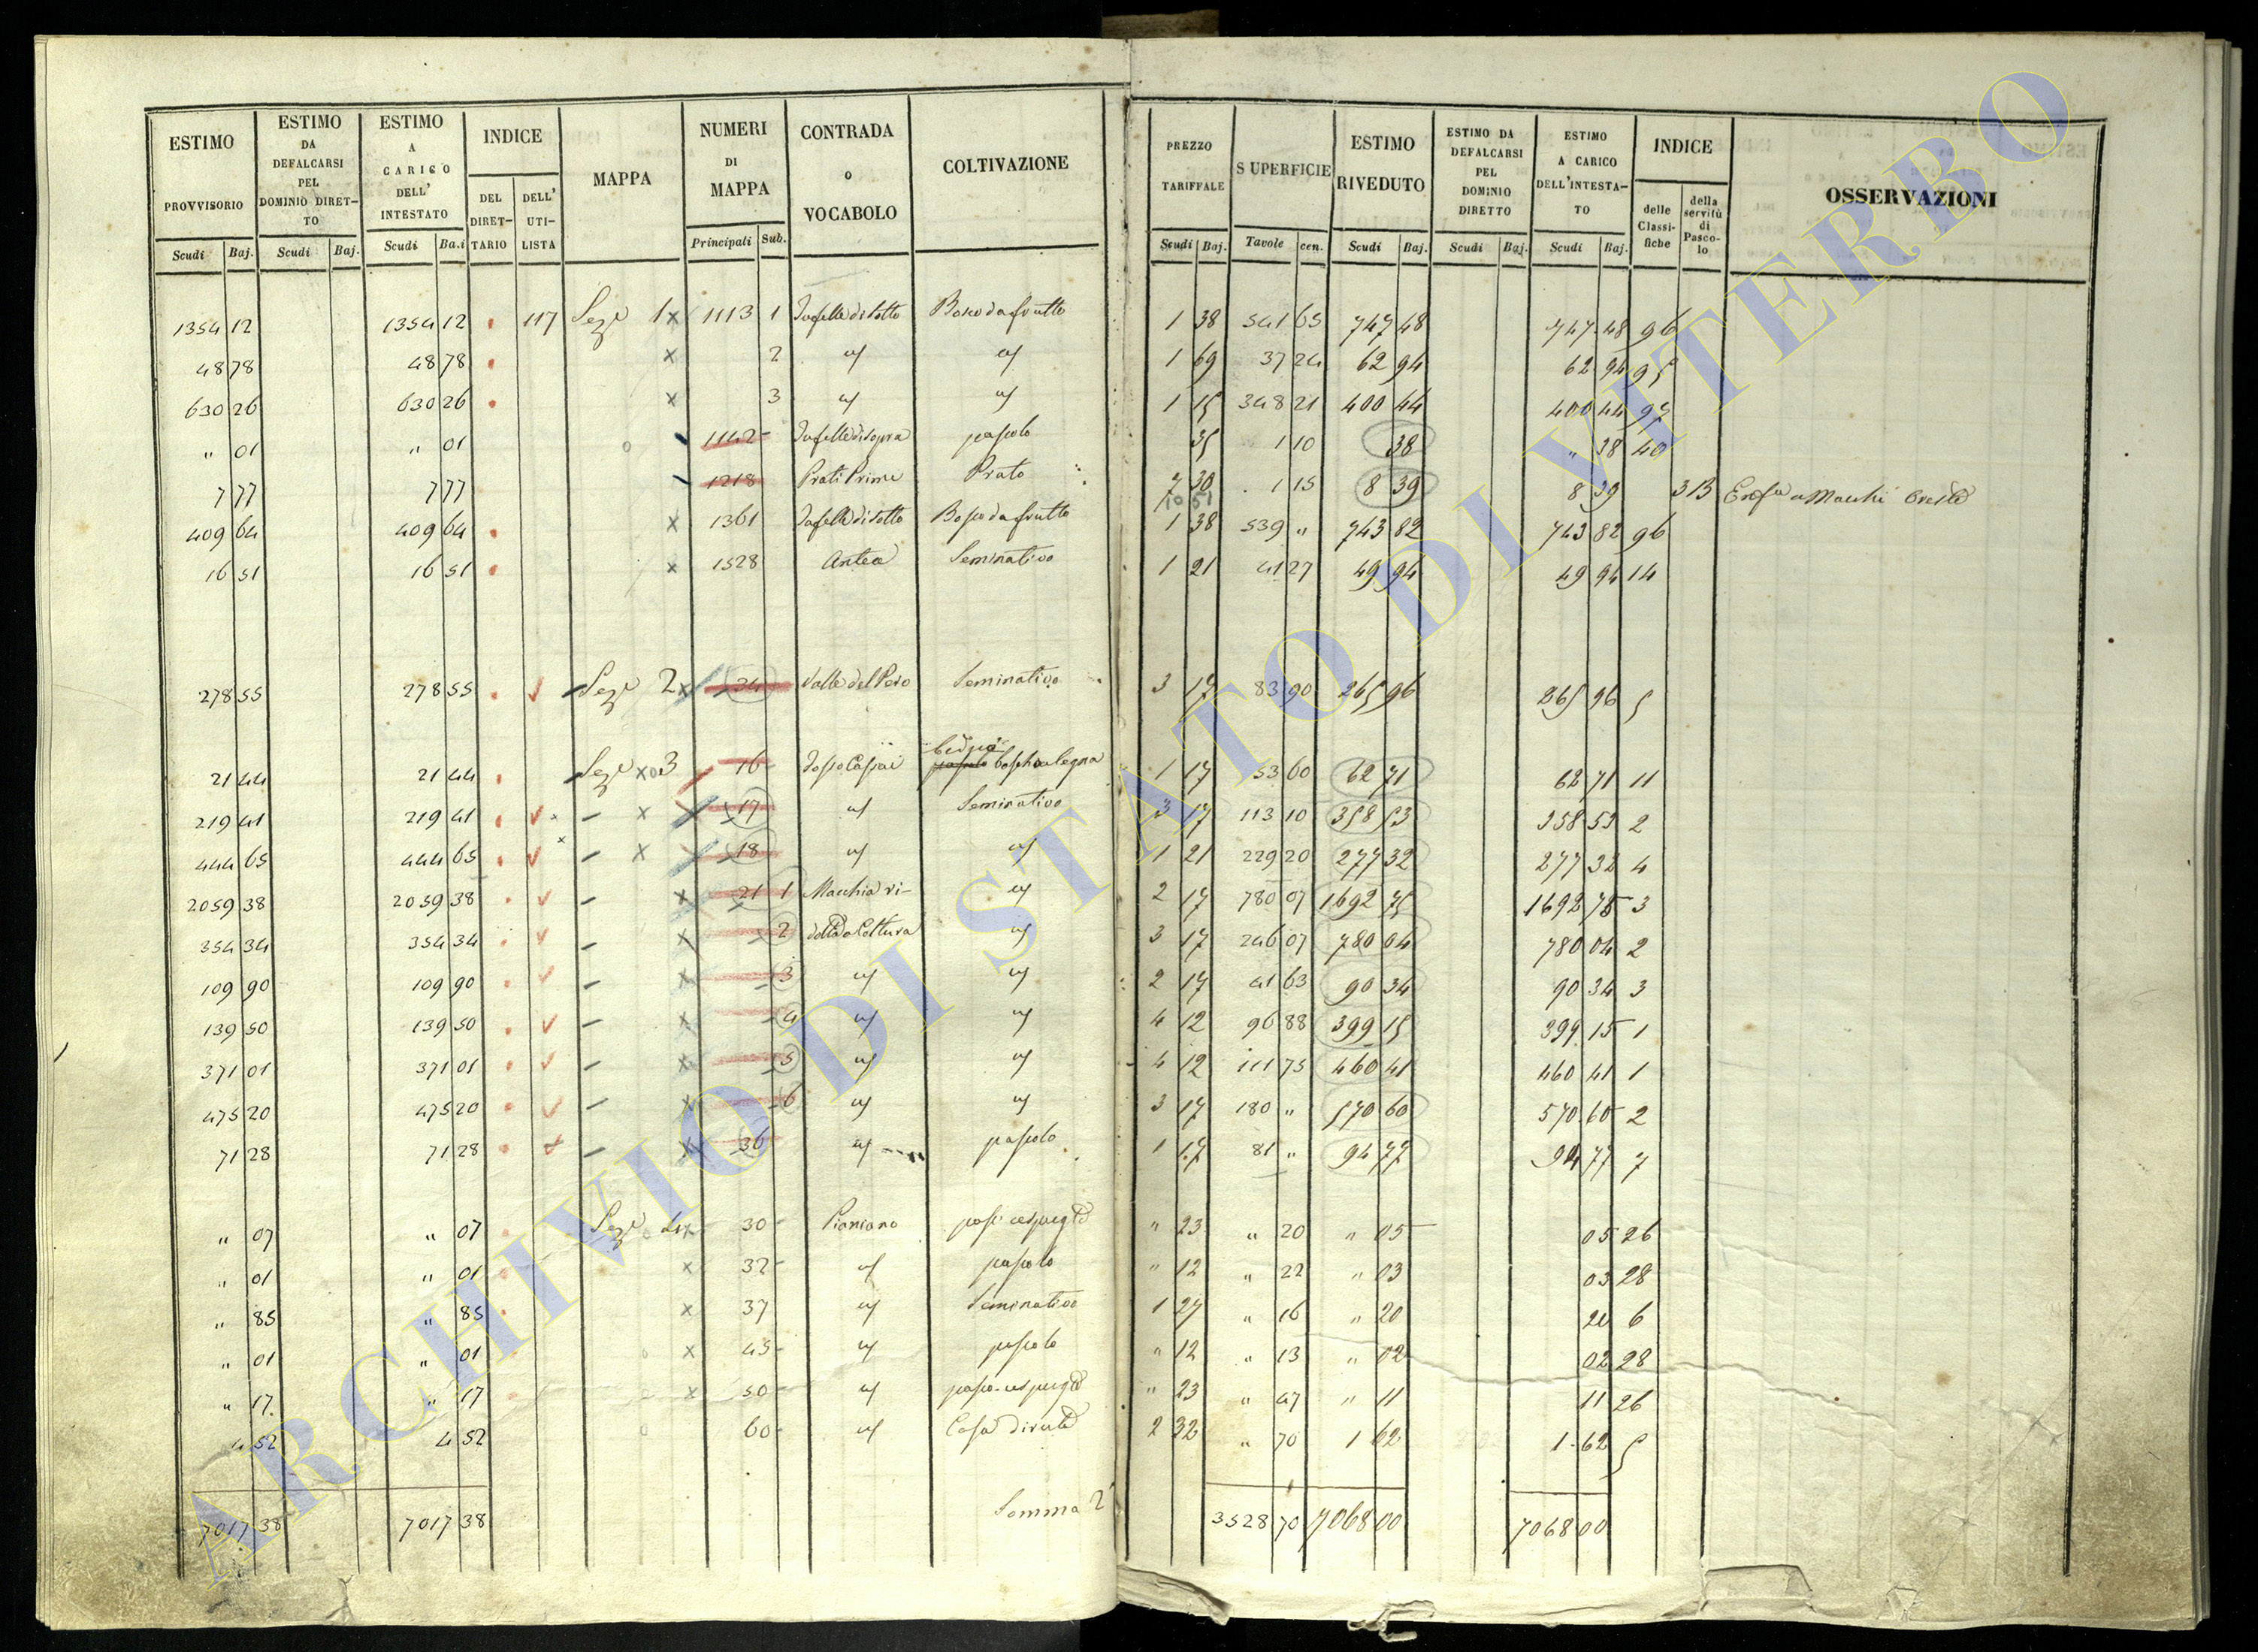 ESTIMO PROVVISORIO Scudi Baj. | ESTIMO DA DEFALCARSI PEL DOMINIO DIRETTO Scudi Baj. | ESTIMO A CARICO DELL' INTESTATO Scudi Ba.i | INDICE DEL DIRETTARIO DELL' UTILISTA | MAPPA | NUMERI DI MAPPA Principali Sub. | CONTRADA o VOCABOLO | COLTIVAZIONE | PREZZO TARIFFALE Scudi Baj. | SUPERFICIE Tavole cen. | ESTIMO RIVEDUTO Scudi Baj. | ESTIMO DA DEFALCARSI PEL DOMINIO DIRETTO Scudi Baj. | ESTIMO A CARICO DELL'INTESTATO Scudi Baj. | INDICE delle Classifiche della servitù di Pascolo | OSSERVAZIONI
1354 12 1354 12 117 Sezе 1x 1113 1 di sotto Bosco da frutto 1 38 541 65 747 48 747 48 96
48 78 48 78 x 2 " " 1 69 37 24 62 94 62 94 95
630 26 630 26 x 3 " " 1 15 348 21 400 44 400 44 97
" 01 " 01 1142 di sopra pascolo 35 1 10 38 " 38 40
7 77 7 77 1218 Prati Prime Prato 7 30 1 15 8 39 8 39 313 Macchi
10 51
409 64 409 64 x 1361 di sotto Bosco da frutto 1 38 539 " 743 82 743 82 96
16 51 16 51 x 1528 Antea Seminativo 1 21 41 27 49 94 49 94 14
278 55 278 55 Seze 2x 34 Valle del Pero Seminativo 3 17 83 90 265 96 265 96 5
21 44 21 44 Seze x 3 16 legna 1 17 53 60 62 71 62 71 11
219 41 219 41 x 17 " Seminativo 3 17 113 10 358 53 358 53 2
444 65 444 65 x 18 " " 1 21 229 20 277 32 277 32 4
2059 38 2059 38 x 21 1 Macchia ri- " 2 17 780 07 1692 75 1692 75 3
354 34 354 34 x 2 " 3 17 246 07 780 04 780 04 2
109 90 109 90 x 3 " " 2 17 41 63 90 34 90 34 3
139 50 139 50 x 4 " " 4 12 96 88 399 15 399 15 1
371 01 371 01 x 5 " " 4 12 111 75 460 41 460 41 1
475 20 475 20 x 6 " " 3 17 180 " 570 60 570 60 2
71 28 71 28 x 36 " pascolo 1 17 81 " 94 77 94 77 7
" 07 " 07 Seze 4x 30 Pianiano " 23 " 20 " 05 05 26
" 01 " 01 x 32 " pascolo " 12 " 22 " 03 03 28
" 85 " 85 x 37 " Seminativo 1 27 " 16 " 20 20 6
" 01 " 01 x 45 " pascolo " 12 " 13 " 02 02 28
" 17 " 17 x 50 " " 23 " 47 " 11 11 26
4 52 4 52 60 " Casa diruta 2 32 " 70 1 62 1 62 5
7017 38 7017 38 Somma 3528 70 7068 00 7068 00
ARCHIVIO DI STATO DI VITERBO